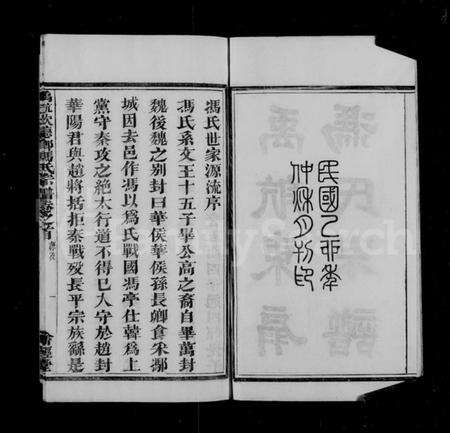 民國乙卯年
仲秋月刊印
馮氏世家源流序
馮氏系文王十五子畢公高之裔自畢萬封
魏後魏之別封曰華侯華侯孫長卿食采鄢
城因去邑作馮以爲氏戰國馮亭仕韓爲上
黨守秦攻之絶太行道不得已入守於趙封
華陽君與趙將括拒秦戰歿長平宗族繇是